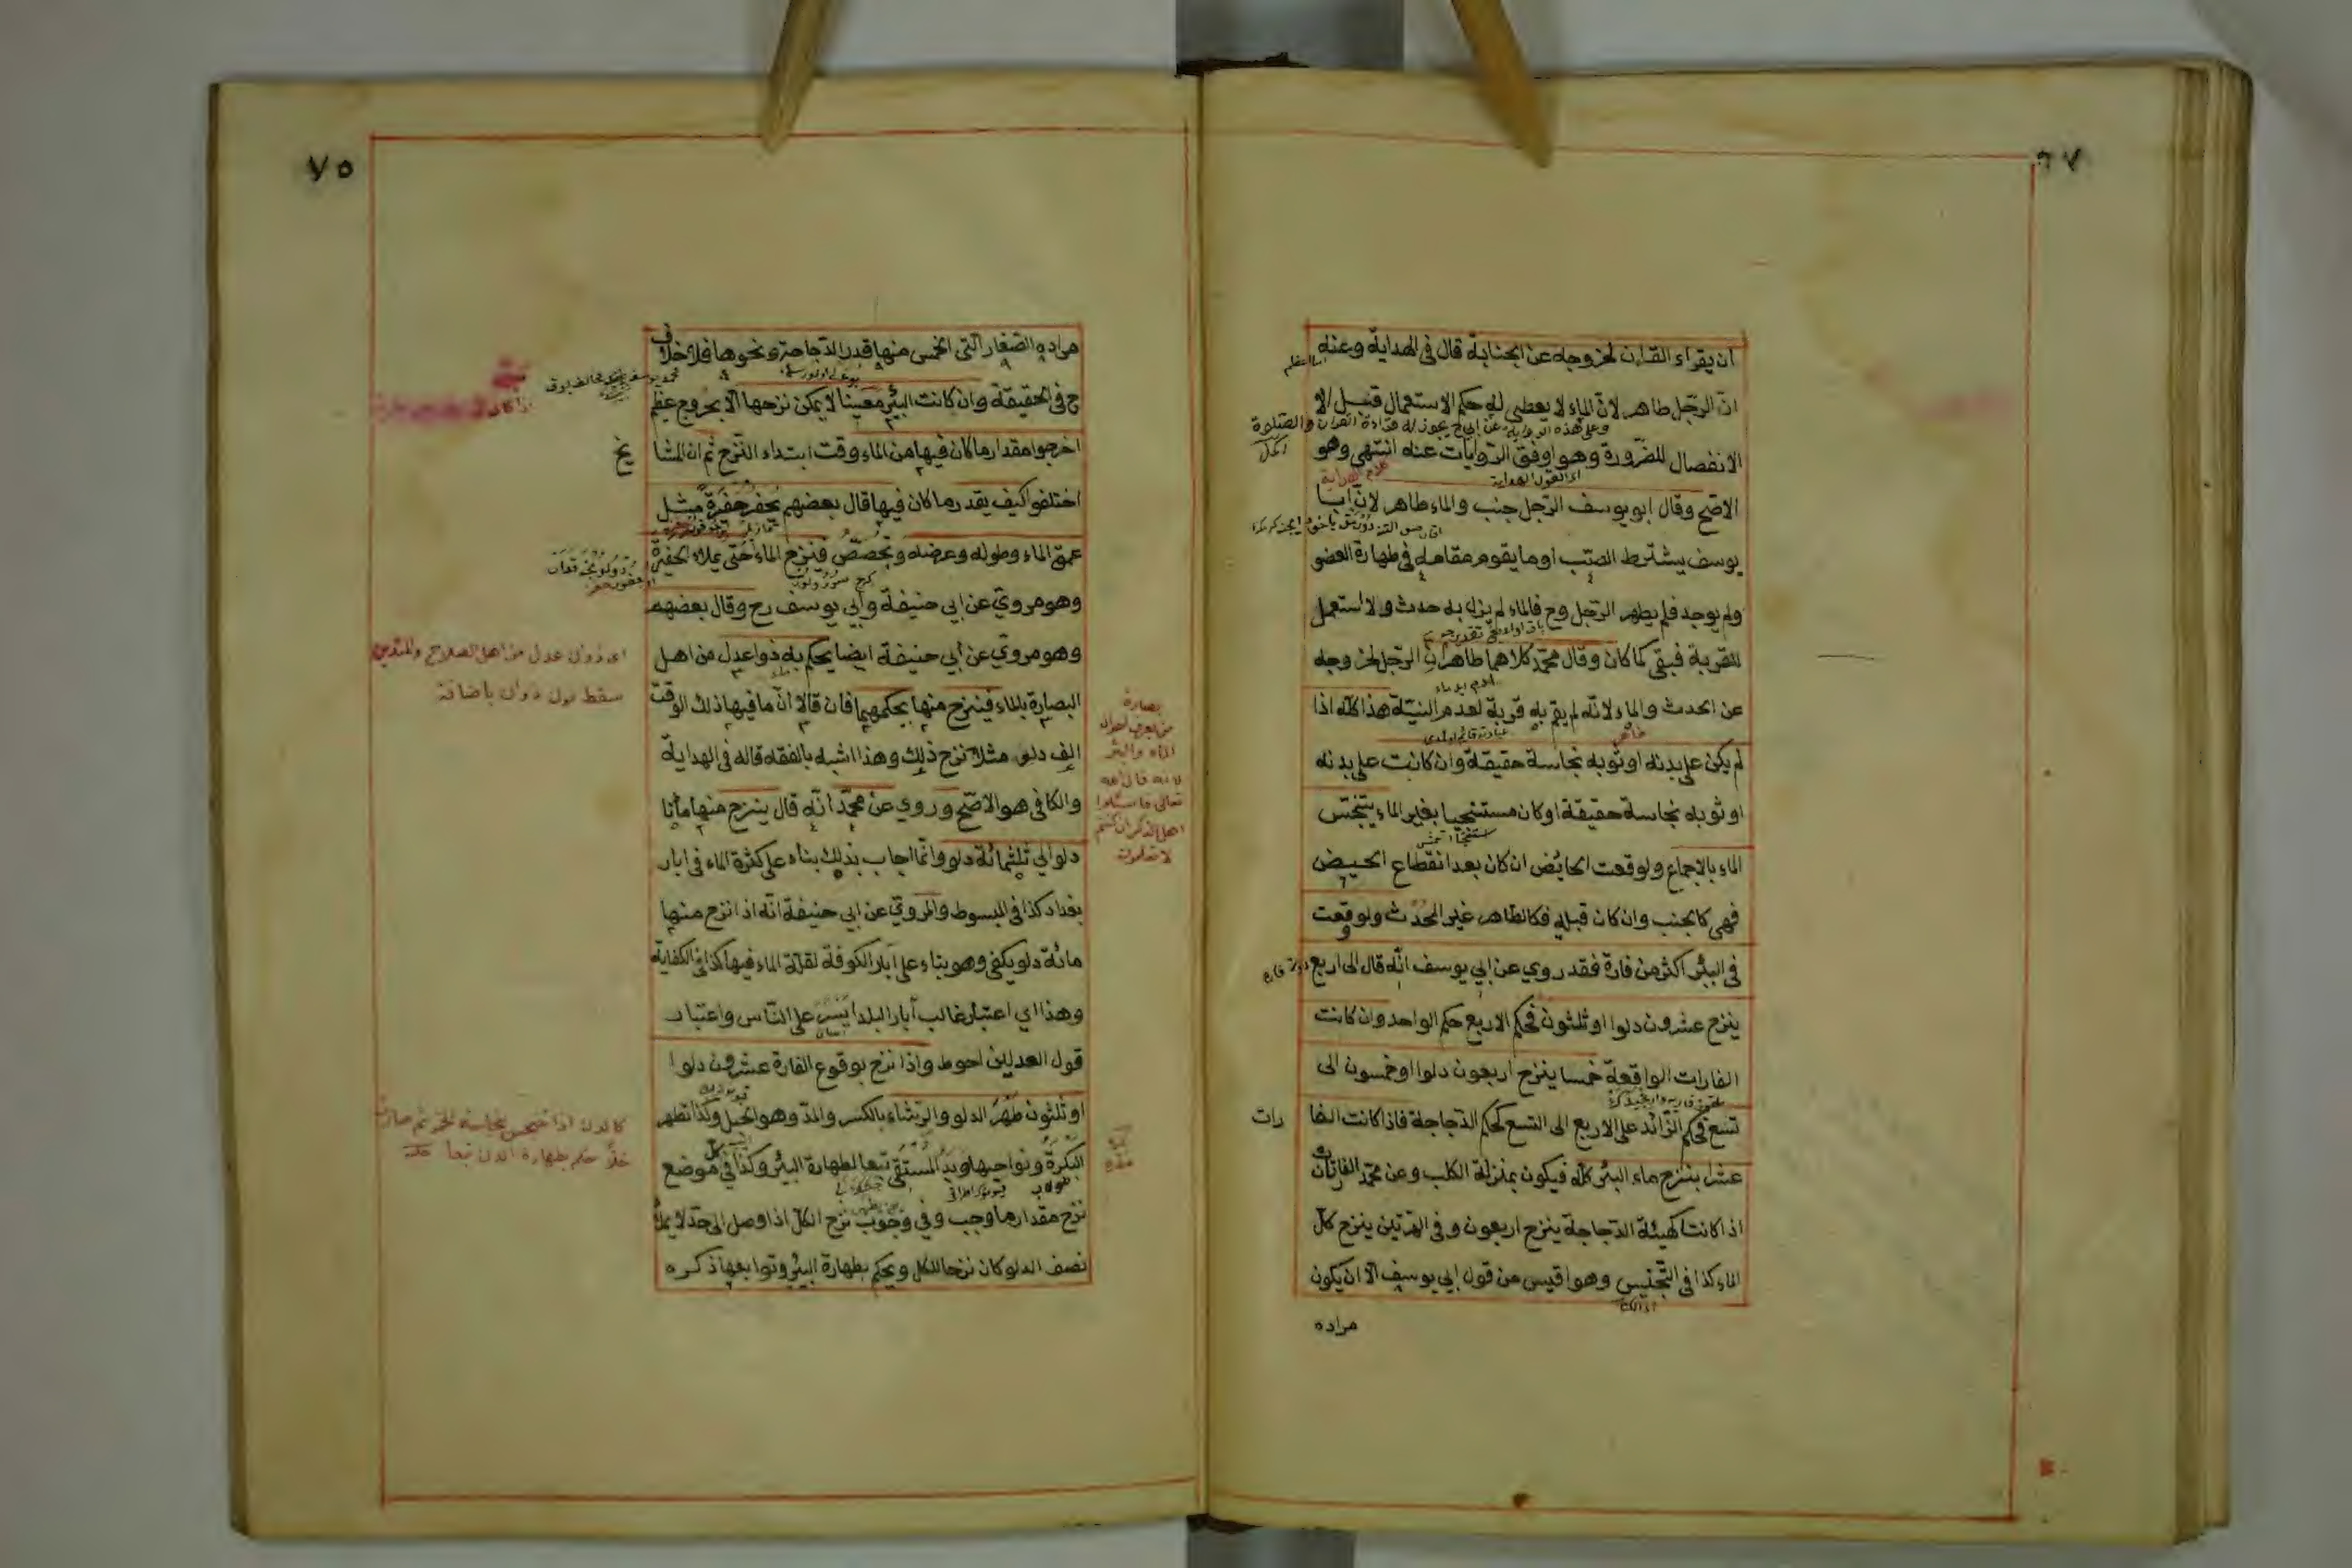 ان يقراء القران لخروجه عن الجنابة قال في الهداية وعنه
ان الرّجل طاهر لانّ الماء لا يعطى له حكم الاستعمال قبل الا
وعلى هذه الرواية عن ابي ح يجوز له قراءة القران والصّلوة
الانفصال للضّرورة وهو اوفق الرّوايات عنه انتهى وهو
الاصّح وقال ابو يوسف الرّجل جنب والماء طاهر لانّ ابا
يوسف يشترط الصّب او ما يقوم مقامه في طهارة العضو
ولم يوجد فلم يطهر الرّجل وح فالماء لم يزل به حدث ولا استعمل
للقربة فبقي كما كان وقال محمّد كلاهما طاهران الرّجل لخروجه
عن الحدث والماء لانّه لم يقم به قربة لعدم النيّة هذا كلّه اذا
لم يكن على بدنه او ثوبه نجاسة حقيقة وان كانت على بدنه
او ثوبه نجاسة حقيقة او كان مستنجيا بغير الماء يتنجّس
الماء بالاجماع ولو وقعت الحائض ان كان بعد انقطاع الحيض
فهي كالجنب وان كان قبله فكالطاهر غير المحدث ولو وقعت
في البئر اكثر من فارة فقد روي عن ابي يوسف انّه قال الى اربع
ينزح عشرون دلوا او ثلثون فحكم الاربع حكم الواحد وان كانت
الفارات الواقعة خمسا ينزح اربعون دلوا او خمسون الى
تسع فحكم الزّائد على الاربع الى التسع كحكم الدّجاجة فاذا كانت الفا
رات
عشرا ينزح ماء البئر كلّه فيكون بمنزلة الكلب وعن محمّد الفارتان
اذا كانتا كهيئة الدّجاجة ينزح اربعون وفي الهرّتين ينزح كلّ
الماء كذا في التّجنيس وهو اقيس من قول ابي يوسف الّا ان يكون
مراده
٧٥
مراده الصّغار الّتي الخمس منها قدر الدّجاجة ونحوها فلا خلاف
ح في الحقيقة وان كانت البئر معينا لا يمكن نزحها الّا بحروج عظيم
اخرجوا مقدار ما كان فيها من الماء وقت ابتداء النّزح ثم ان المشا
يخ
اختلفوا كيف يقدر ما كان فيها قال بعضهم يحفر حفرة مثل
عمق الماء وطوله وعرضه وتجصّص فينزح الماء حتى يملاء الحفرة
وهو مروي عن ابي حنيفة وابي يوسف رح وقال بعضهم
وهو مروي عن ابي حنيفة ايضا يحكم به ذوا عدل من اهل
البصارة بالماء فينزح منها بحكمهما فان قالا انّ ما فيها ذلك الوقت
الف دلو مثلا نزح ذلك وهذا اشبه بالفقه قاله في الهداية
والكافي هو الاصّح وروي عن محمّد انّه قال ينزح منها مائتا
دلو الى ثلثمائة دلو وانّما اجاب بذلك بناء على كثرة الماء في ابار
بغداد كذا في المبسوط والمروي عن ابي حنيفة انّه اذا نزح منها
مائة دلو يكفي وهو بناء على آبار الكوفة لقلّة الماء فيها كذا في الكفاية
وهذا اي اعتبار غالب آبار البلد ايسر على النّاس واعتبار
قول العدلين احوط واذا نزح بوقوع الفارة عشرون دلوا
او ثلثون طهر الدلو والرّشاء بالكسر والمدّ وهو الحبل وكذا تطهر
البكرة ونواحيها ويد المستقي تبعا لطهارة البئر وكذا في كل موضع
نزح مقدار ما وجب وفي وجوب نزح الكلّ اذا وصل الى حدّ لا يملأ
نصف الدلو كان نزحا للكل ويحكم بطهارة البئر وتوابعها ذكره
اى ذوى عدل من اهل الصلاح والتدين
سقط نون ذوان باضافة
بصارة
من يعرف احوال
الماء والبئر
لانه قال الله
تعالى فاسئلوا
اهل الذكر ان كنتم
لا تعلمون